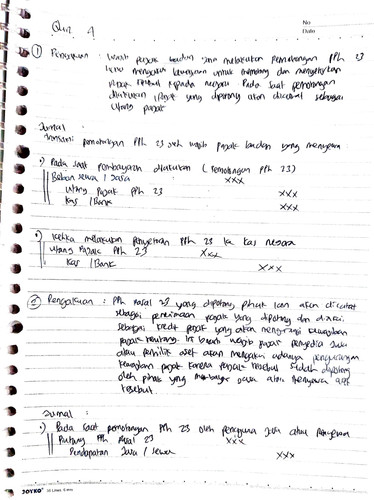 Quiz 4
No
Date
① Pengakuan : Wajib pajak badan yang melakukan pemotongan PPh 23
akan mengakui kewajiban untuk memotong dan menyetorkan
pajak tersebut kepada negara Pada saat pemotongan
dilakukan, Pajak yang dipotong akan dicatat sebagai
utang pajak
Jurnal
Transaksi pemotongan PPh 23 oleh wajib pajak badan yang menyewa
•) Pada saat pembayaran dilakukan (Pemotongan PPh 23)
Beban sewa / Jasa xxx
Utang Pajak PPh 23 xxx
Kas / Bank xxx
•) Ketika melakukan penyetoran PPh 23 ke kas negara
Utang Pajak PPh 23 xxx
Kas / Bank xxx
② Pengakuan : PPh Pasal 23 yang dipotong pihak lain akan dicatat
sebagai penerimaan pajak yang dipotong dan diakui
sebagai kredit pajak yang akan mengurangi kewajiban
pajak terutang. Ini berarti wajib pajak penyedia jasa
atau pemilik aset akan mengakui adanya pengurangan
kewajiban pajak karena pajak tersebut sudah dipotong
oleh pihak yang membayar jasa atau menyewa aset
tersebut.
Jurnal :
•) Pada saat pemotongan PPh 23 oleh pengguna jasa atau penyewa
Piutang PPh Pasal 23 xxx
Pendapatan Jasa / sewa xxx
JOYKO 30 Lines, 8 mm